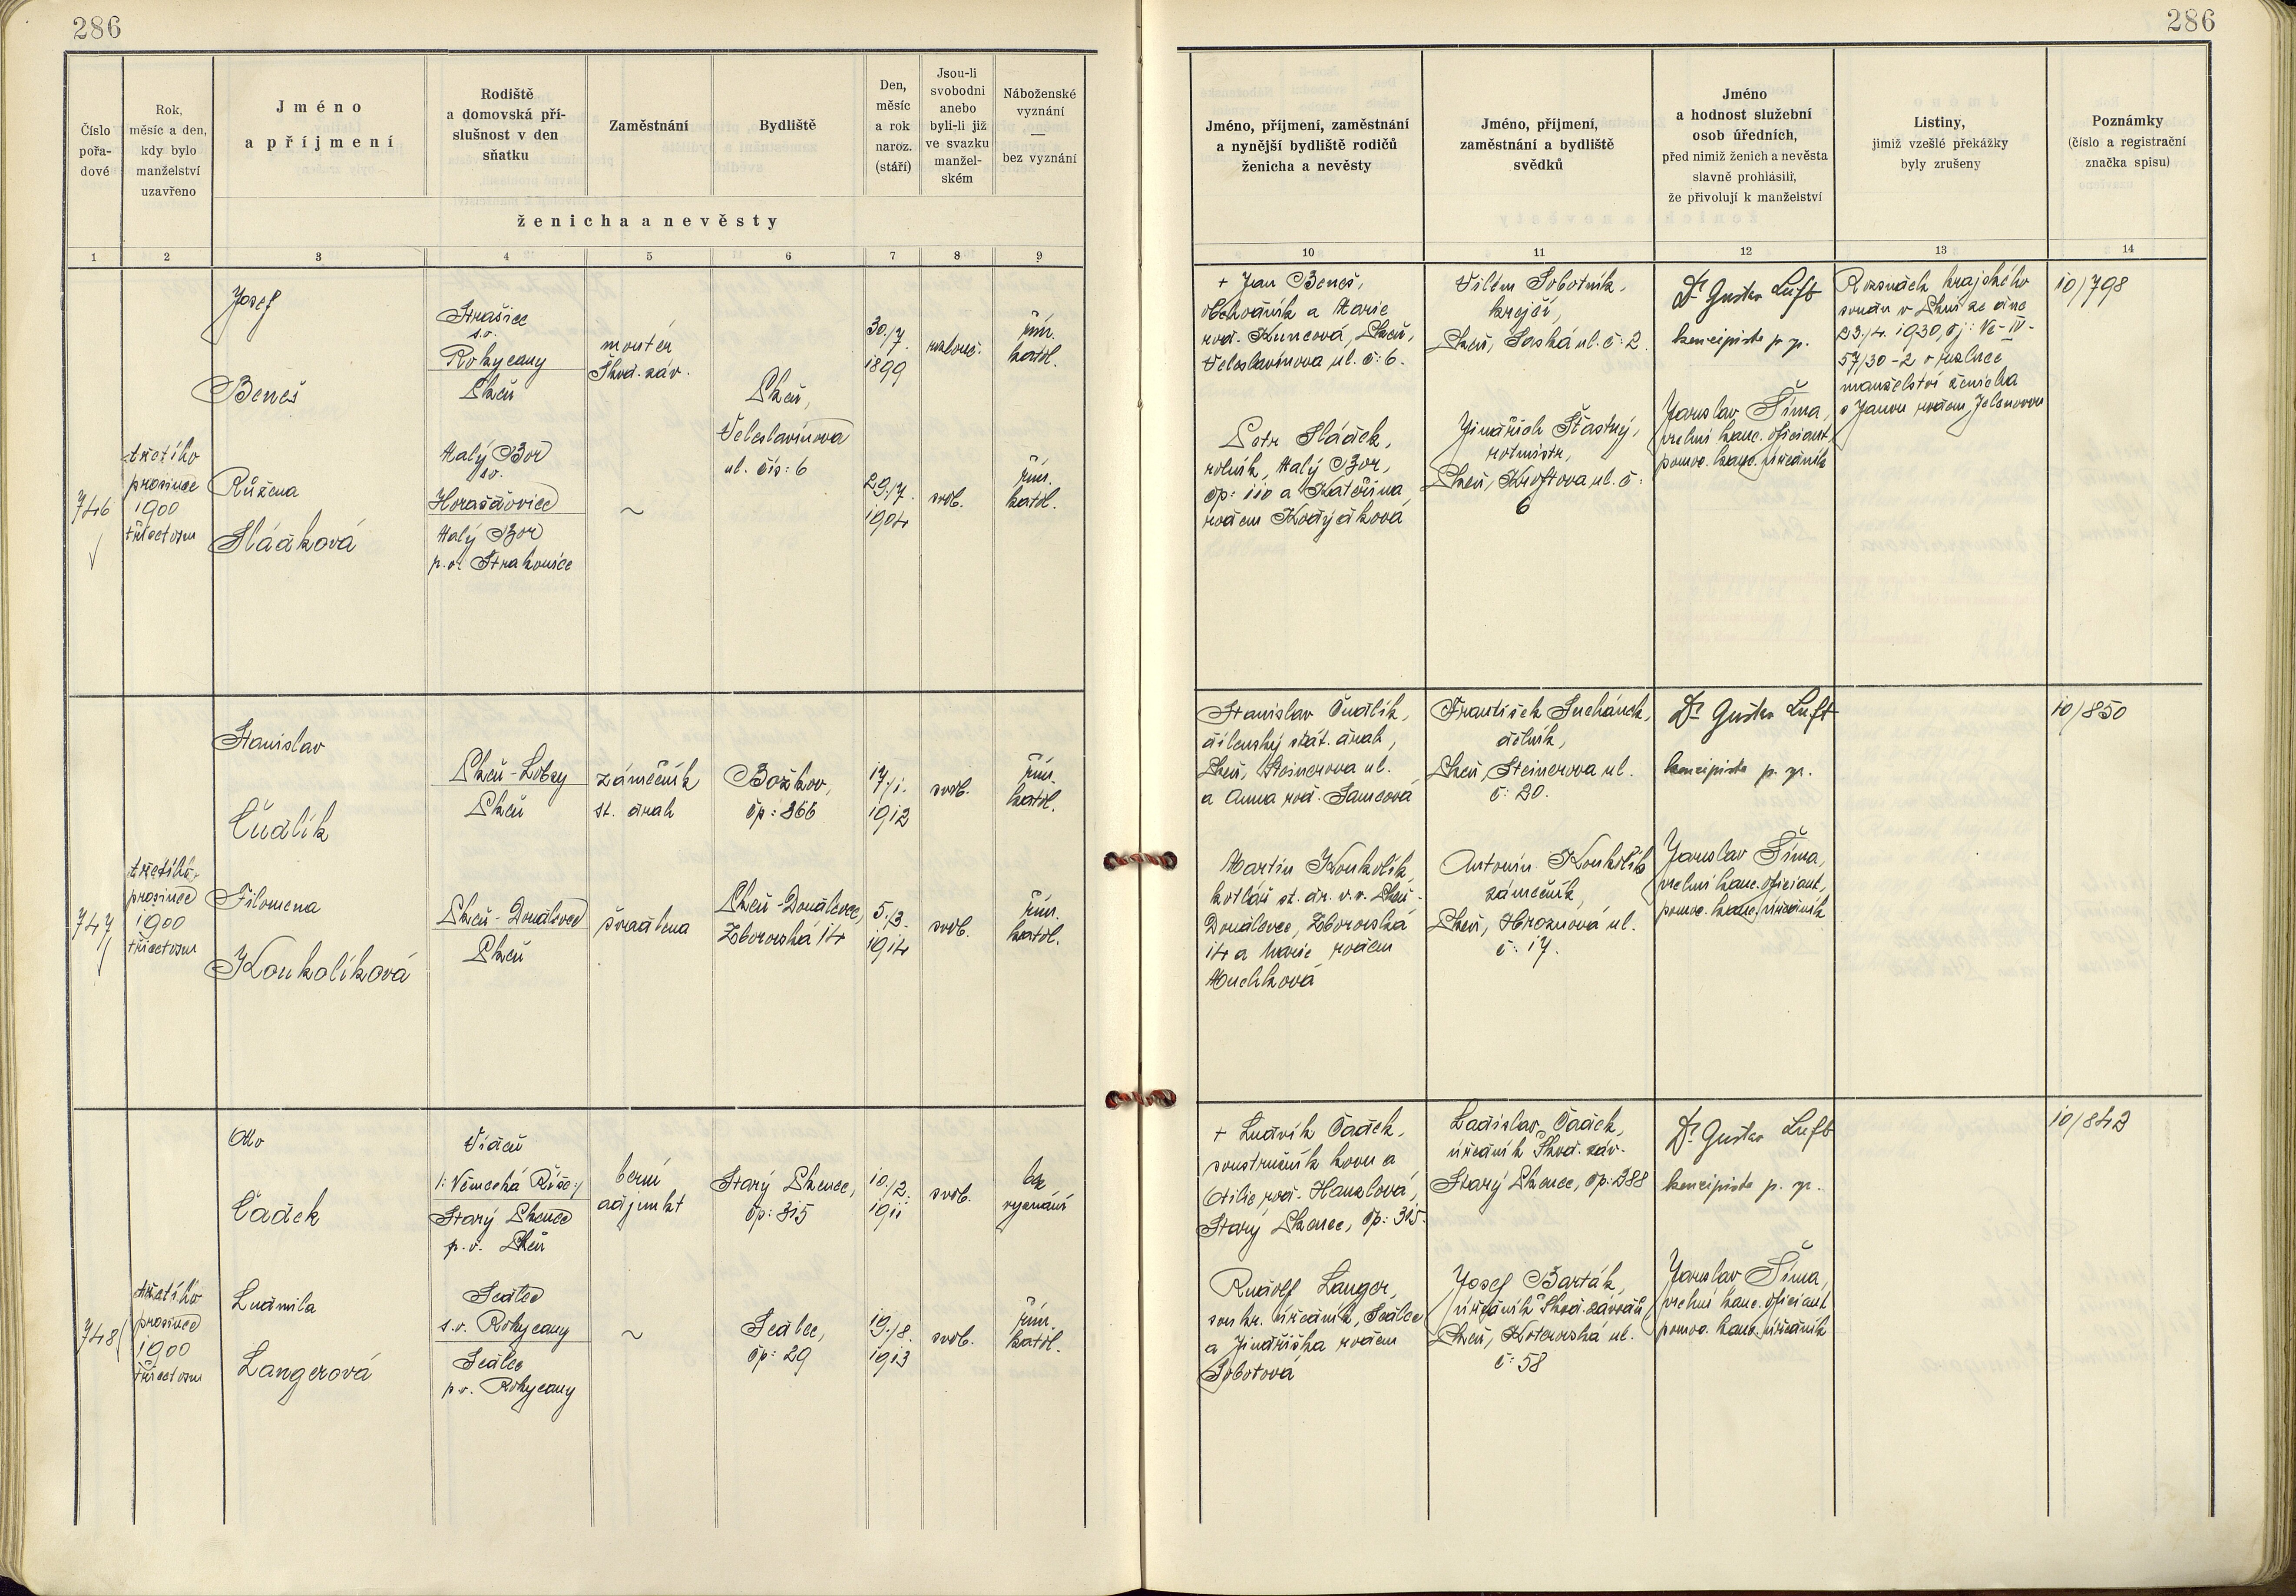 286
286
Číslo
pořa-
dové
Rok,
měsíc a den,
kdy bylo
manželství
uzavřeno
Jméno
a příjmení
Rodiště
a domovská pří-
slušnost v den
sňatku
Zaměstnání
Bydliště
Den,
měsíc
a rok
naroz.
(stáří)
Jsou-li
svobodni
anebo
byli-li již
ve svazku
manžel-
ském
Náboženské
vyznání
—
bez vyznání
ženicha a nevěsty
Jméno, příjmení, zaměstnání
a nynější bydliště rodičů
ženicha a nevěsty
Jméno, příjmení,
zaměstnání a bydliště
svědků
Jméno
a hodnost služební
osob úředních,
před nimiž ženich a nevěsta
slavně prohlásili,
že přivolují k manželství
Listiny,
jimiž vzešlé překážky
byly zrušeny
Poznámky
(číslo a registrační
značka spisu)
1 2 3 4 5 6 7 8 9
10 11 12 13 14
746
třetího
prosince
1900
třicetosm
Josef
Beneš
Růžena
Sládková
Strašice
s.o.
Rokycany
Plzeň
Malý Bor
s.o.
Horažďovice
Malý Bor
p.o. Strakonice
montér
Škod. záv.
~
Plzeň,
Veleslavínova
ul. čís: 6
30./7.
1899
29./7.
1904
rozlouč.
svob.
řím.
katol.
řím.
katol.
+ Jan Beneš,
obchodník a Marie
rod. Kuncová, Plzeň,
Veleslavínova ul. č: 6.
Petr Sládek,
rolník, Malý Bor,
čp: 110 a Kateřina
rodem
Vilém Sobotník,
krejčí,
Plzeň, Saská ul. č: 2.
Jindřich Šťastný,
rotmistr,
Plzeň, Kroftova ul. č:
6
Dr Gustav Luft
koncipista p. zp.
Jaroslav Šíma,
vrchní kanc. oficiant,
pomoc. kanc. úředník
Rozsudek krajského
soudu v Plzni ze dne
23./4. 1930, čj: Vc-IV-
57/30-2 o rozluce
manželství ženicha
s Janou rodem Jelenovou
10/798
747
třetího
prosince
1900
třicetosm
Stanislav
Čudlík
Filomena
Koukolíková
Plzeň-Lobzy
Plzeň
Plzeň-Doudlevce
Plzeň
zámečník
st. drah
švadlena
Božkov,
čp: 266
Plzeň-Doudlevce,
Zborovská 14
17/1.
1912
5./3.
1914
svob.
svob.
řím.
katol.
řím.
katol.
Stanislav Čudlík,
dílenský stát. drah,
Plzeň, Steinerova ul.
a Anna rod. Samcová
Martin Koukolík,
kotlář st. dr. v.v. Plzeň-
Doudlevce, Zborovská
14 a Marie rodem
Muchková
František Suchánek,
dělník,
Plzeň, Steinerova ul.
č: 20.
Antonín Koukolík
zámečník,
Plzeň, Hroznová ul.
č: 17.
Dr Gustav Luft
koncipista p. zp.
Jaroslav Šíma,
vrchní kanc. oficiant,
pomoc. kanc. úředník
10/850
748
třetího
prosince
1900
třicetosm
Otto
Čadek
Ludmila
Langerová
Vídeň
/: Německá Říše:/
Starý Plzenec
p.o. Plzeň
Sedlec
s.o. Rokycany
Sedlec
p.o. Rokycany
berní
adjunkt
~
Starý Plzenec,
čp: 315
Sedlec,
čp: 29
10./2.
1911
19./8.
1913
svob.
svob.
bez
vyznání
řím.
katol.
+ Ludvík Čadek,
soustružník kovu a
Otilie, rod. Hanzlová,
Starý Plzenec, čp: 315.
Rudolf Langer,
soukr. úředník, Sedlec
a Jindřiška rodem
Sobotová
Ladislav Čadek,
úředník Škod. záv.
Starý Plzenec, čp: 288
Josef Barták,
úředník Škod. závodů
Plzeň, Koterovská ul.
č: 58
Dr Gustav Luft
koncipista p. zp.
Jaroslav Šíma,
vrchní kanc. oficiant
pomoc. kanc. úředník
10/842